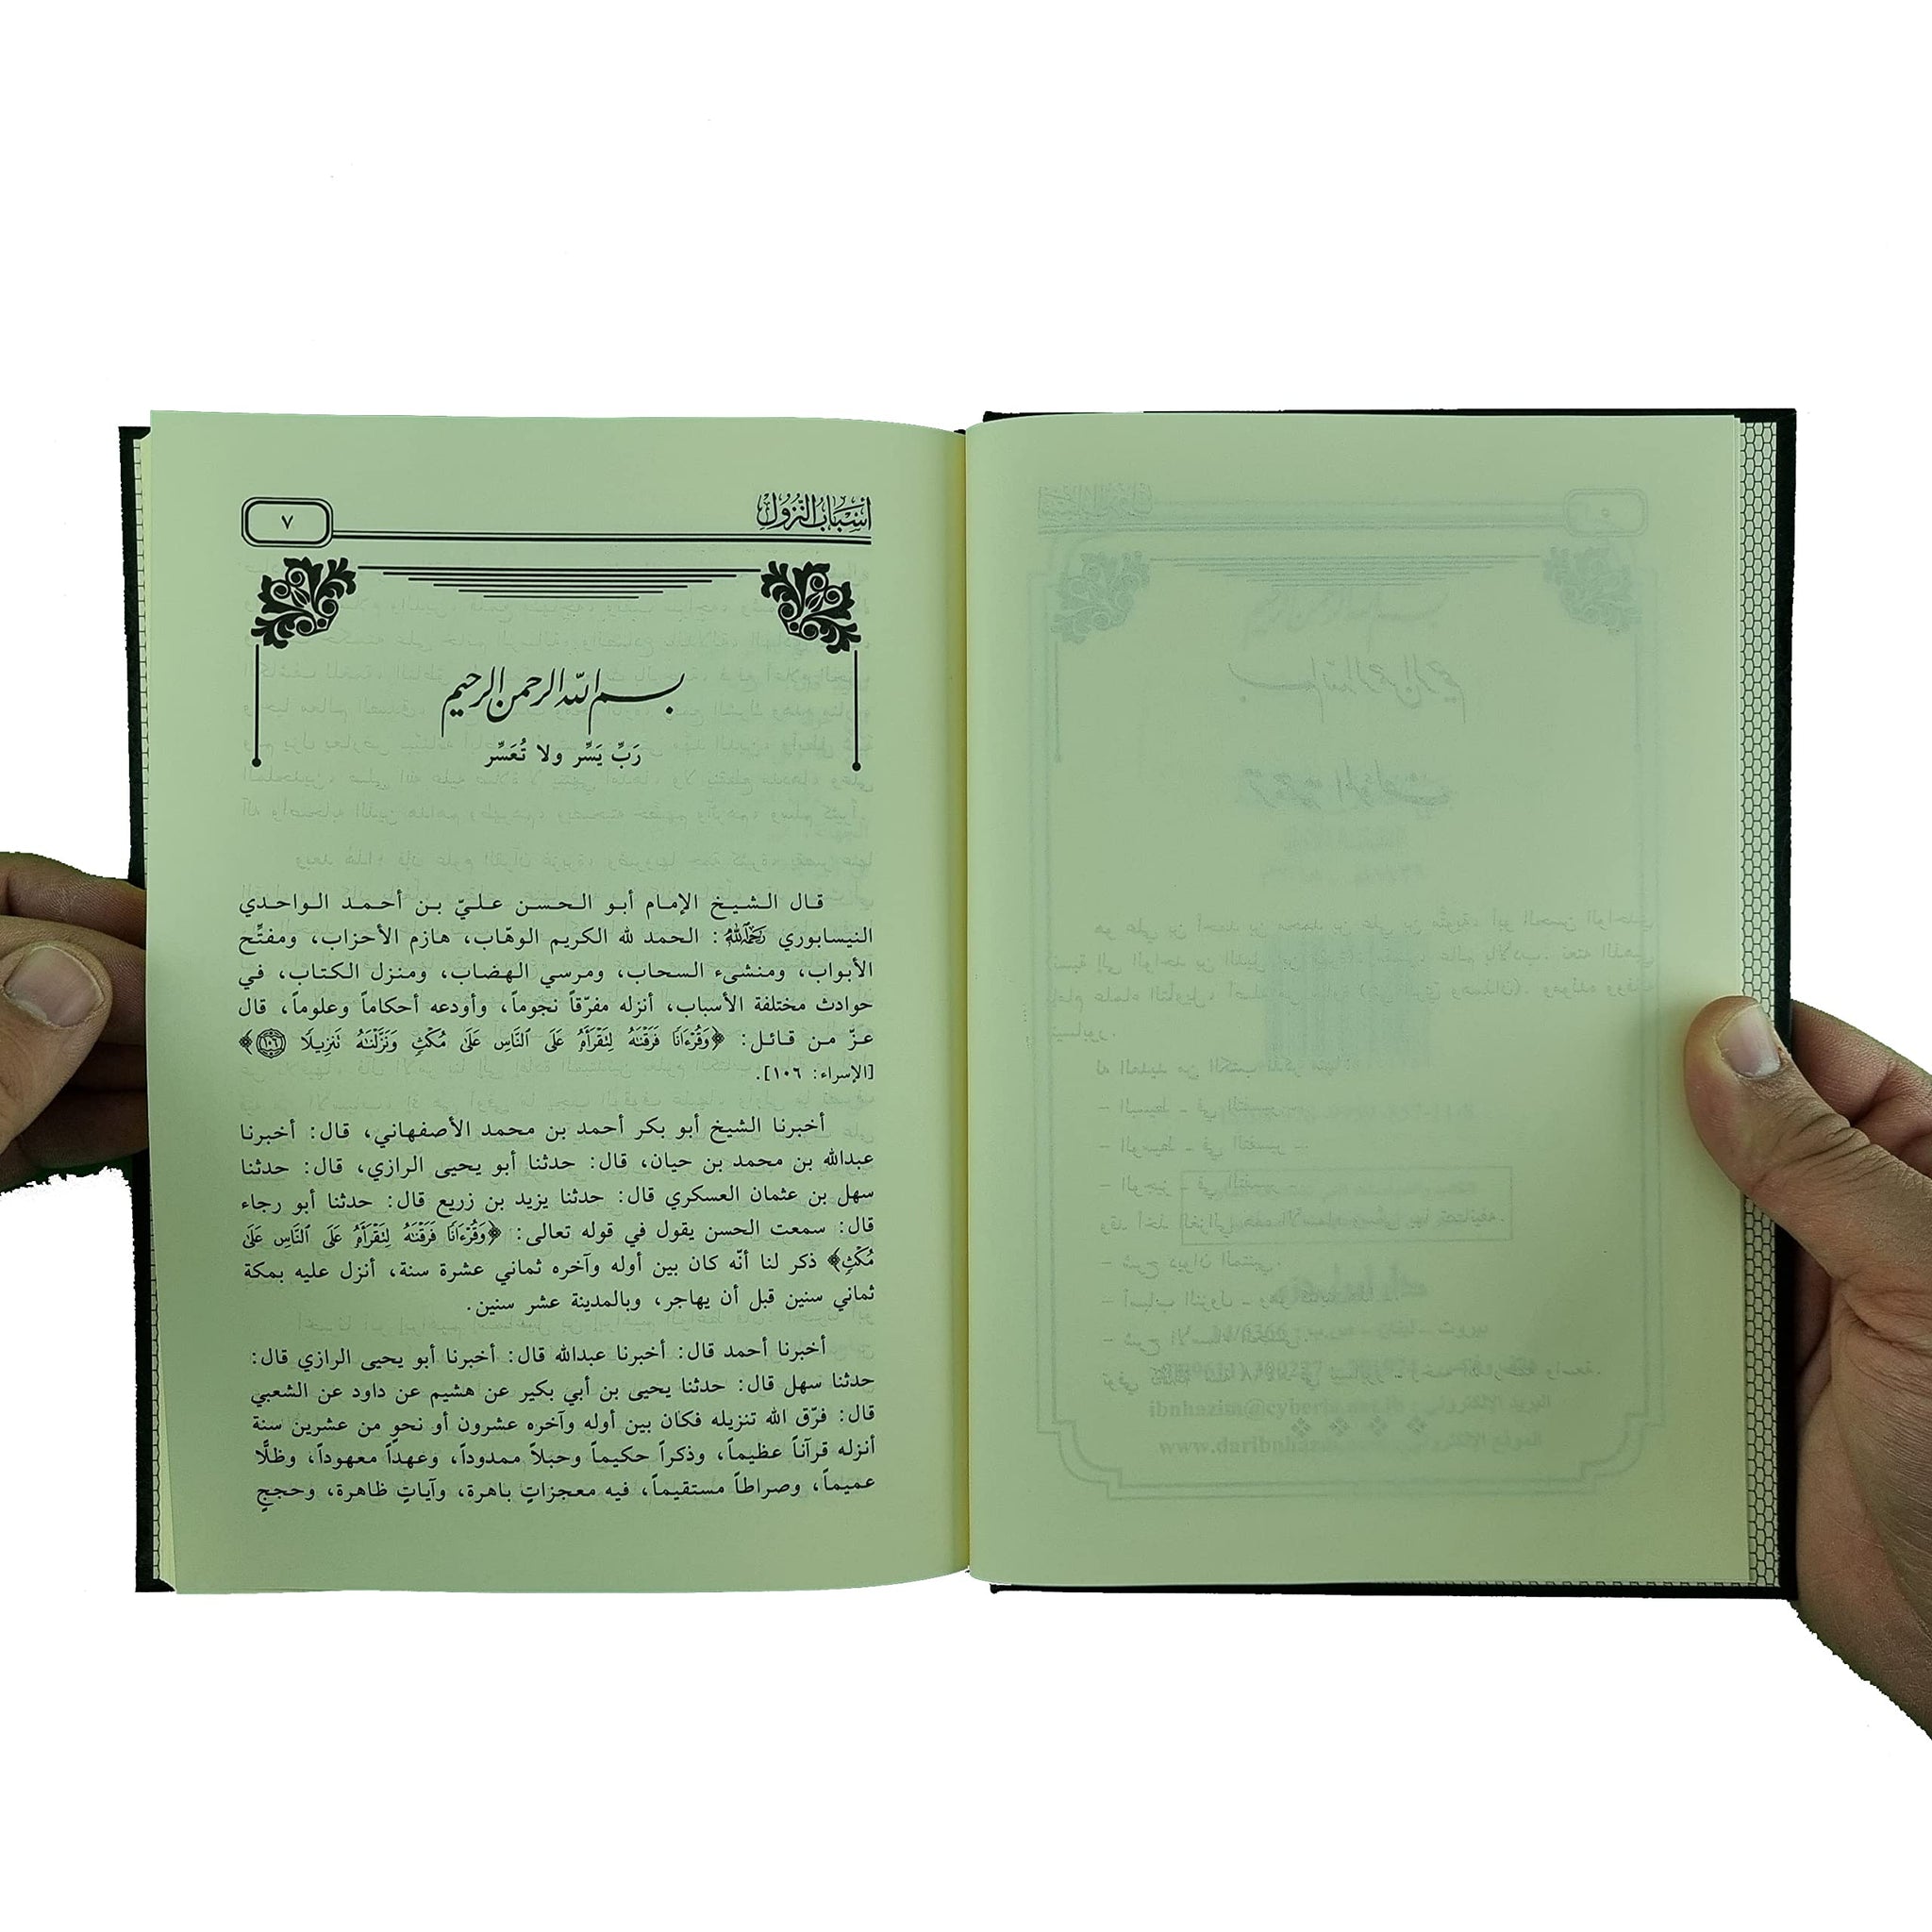 أسباب النزول
٧
بسم الله الرحمن الرحيم
رَبِّ يَسِّر ولا تُعَسِّر
قال الشيخ الإمام أبو الحسن عليّ بن أحمد الواحدي
النيسابوري رَحِمَهُ اللهُ: الحمد لله الكريم الوهّاب، هازم الأحزاب، ومفتِّح
الأبواب، ومنشىء السحاب، ومرسي الهضاب، ومنزل الكتاب، في
حوادث مختلفة الأسباب، أنزله مفرّقاً نجوماً، وأودعه أحكاماً وعلوماً، قال
عزّ من قائل: ﴿وَقُرْءَانًا فَرَقْنَٰهُ لِتَقْرَأَهُۥ عَلَى ٱلنَّاسِ عَلَىٰ مُكْثٍ وَنَزَّلْنَٰهُ تَنزِيلًا ١٠٦﴾
[الإسراء: ١٠٦].
أخبرنا الشيخ أبو بكر أحمد بن محمد الأصفهاني، قال: أخبرنا
عبدالله بن محمد بن حيان، قال: حدثنا أبو يحيى الرازي، قال: حدثنا
سهل بن عثمان العسكري قال: حدثنا يزيد بن زريع قال: حدثنا أبو رجاء
قال: سمعت الحسن يقول في قوله تعالى: ﴿وَقُرْءَانًا فَرَقْنَٰهُ لِتَقْرَأَهُۥ عَلَى ٱلنَّاسِ عَلَىٰ
مُكْثٍ﴾ ذكر لنا أنّه كان بين أوله وآخره ثماني عشرة سنة، أنزل عليه بمكة
ثماني سنين قبل أن يهاجر، وبالمدينة عشر سنين.
أخبرنا أحمد قال: أخبرنا عبدالله قال: أخبرنا أبو يحيى الرازي قال:
حدثنا سهل قال: حدثنا يحيى بن أبي بكير عن هشيم عن داود عن الشعبي
قال: فرّق الله تنزيله فكان بين أوله وآخره عشرون أو نحو من عشرين سنة
أنزله قرآناً عظيماً، وذكراً حكيماً وحبلاً ممدوداً، وعهداً معهوداً، وظلًّا
عميماً، وصراطاً مستقيماً، فيه معجزاتٍ باهرة، وآياتٍ ظاهرة، وحججٍ